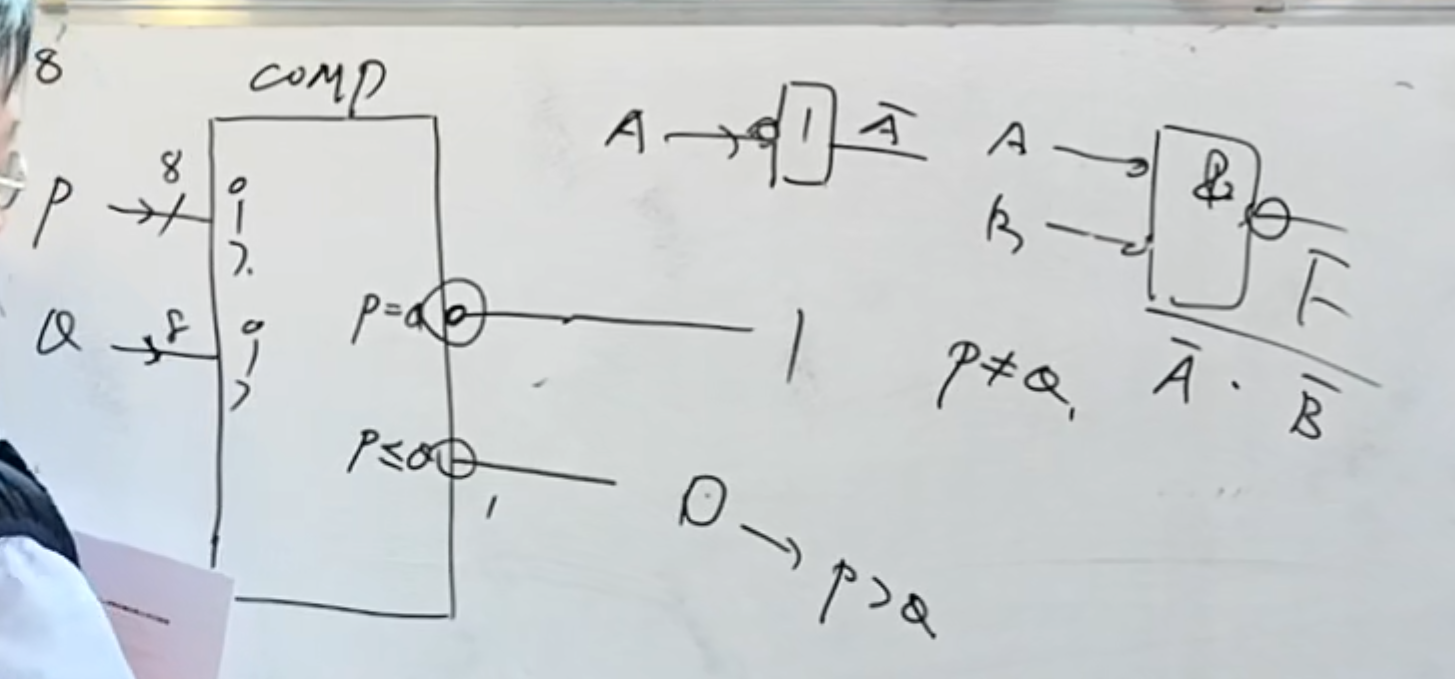 8
COMP
P 8 0
1
7
Q 8 0
1
7
P=Q 1
P≤Q 1 0
P>Q
A 1 A̅
A & F
B
P≠Q, A̅ · B̅